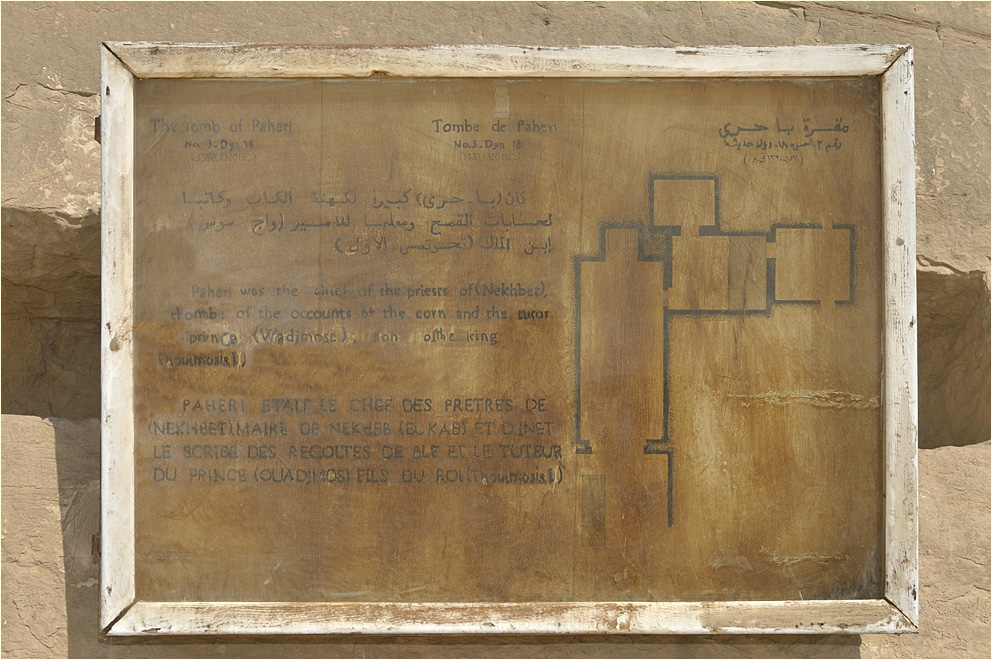 The Tomb of Paheri
No. 3 - Dyn 18
(1570, 1320 B.C.)
Tombe de Paheri
No. 3 - Dyn 18
(1570, 1320 B.C.)
مقبرة با حرى
رقم ٣
كان (با - حرى) كبيرا لكهنة الكاب وكاتبا
لحسابات القمح ومعلما للامير (واج موس)
إبن الملك (تحوتمس الاول)
Paheri was the chief of the priests of (Nekhbet),
of the occounts at the corn and the
prince (Wadjmose), son of the king
Thoutmosis I)
PAHERI ETAIT LE CHEF DES PRETRES DE
(NEKHBET) MAIRE DE NEKHEB (EL KAB) ET D'INET
LE SCRIBE DES RECOLTES DE BLE ET LE TUTEUR
DU PRINCE (OUADJMOS) FILS DU ROI (Thoutmosis I)